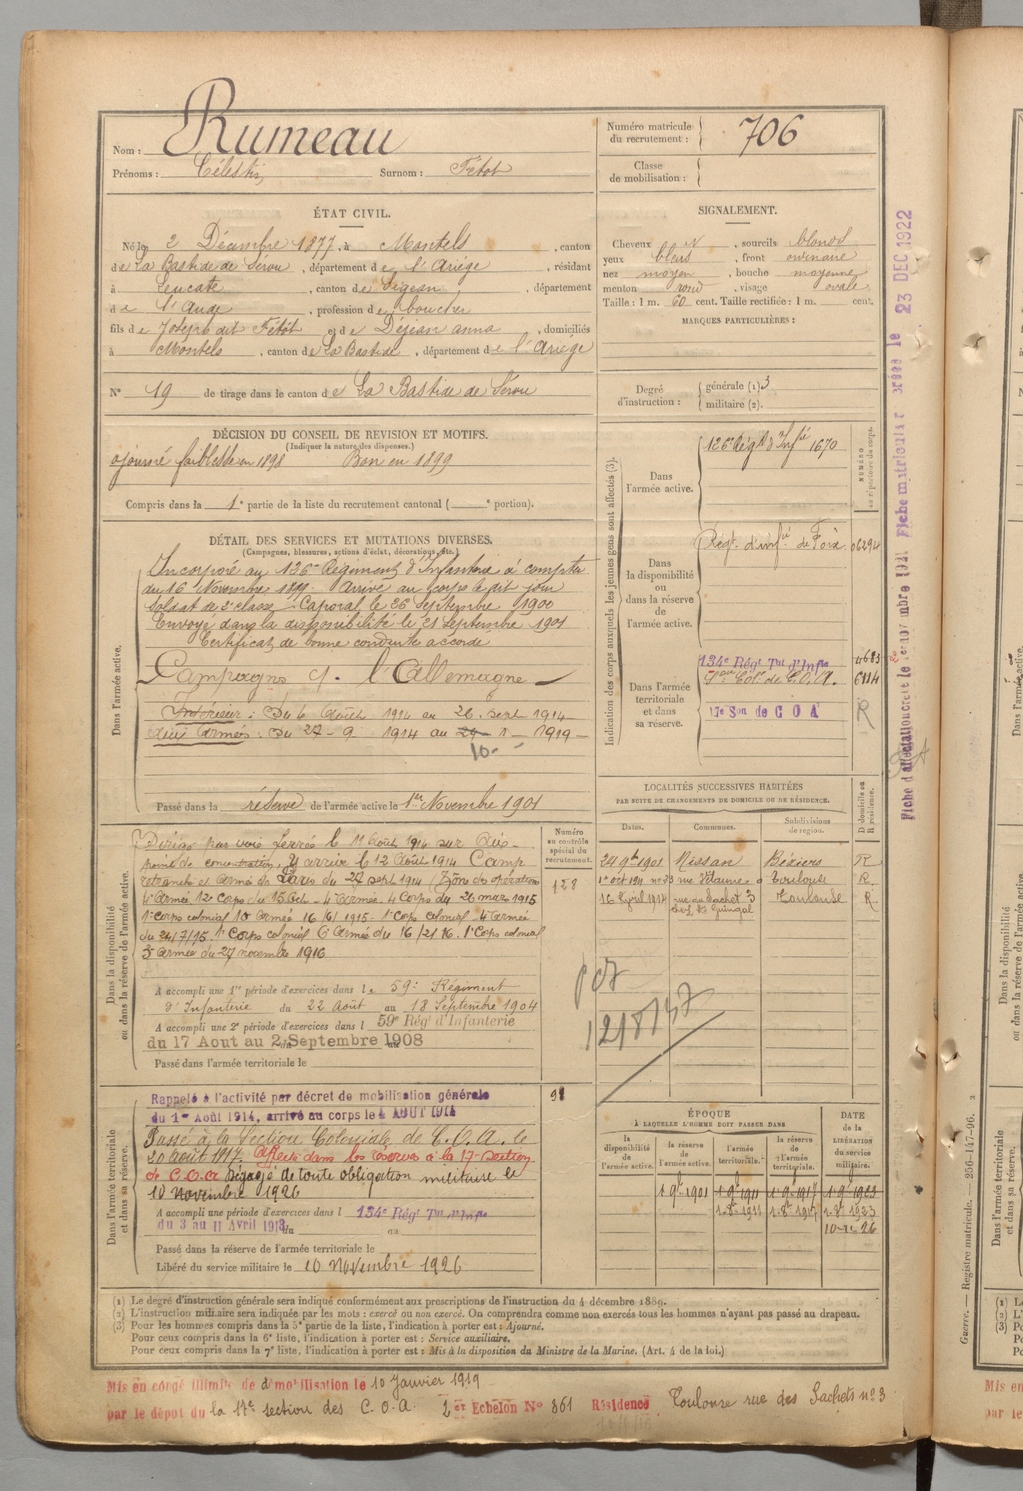 Nom : Rumeau
Prénoms : Célestin Surnom : Fétot
Numéro matricule du recrutement : 706
Classe de mobilisation :
ÉTAT CIVIL.
Né le 2 Décembre 1877, à Montels, canton
de La Bastide de Sérou, département de l'Ariège, résidant
à Leucate, canton de Sigean, département
de l'Aude, profession de boucher
fils de Joseph dit Fétot et de Déjean anna, domiciliés
à Montels, canton de La Bastide, département de l'Ariège
N° 19 de tirage dans le canton de La Bastide de Sérou
SIGNALEMENT.
Cheveux , sourcils blonds
yeux bleus, front ordinaire
nez moyen, bouche moyenne
menton rond, visage ovale
Taille : 1 m. 60 cent. Taille rectifiée : 1 m. cent.
MARQUES PARTICULIÈRES :
Degré d'instruction : générale (1) 3
militaire (2).
DÉCISION DU CONSEIL DE REVISION ET MOTIFS.
(Indiquer la nature des dispenses.)
ajourné faiblesse en 1898 Bon en 1899
Compris dans la 1e partie de la liste du recrutement cantonal ( e portion).
DÉTAIL DES SERVICES ET MUTATIONS DIVERSES.
(Campagnes, blessures, actions d'éclat, décorations, etc.)
Dans l'armée active.
Incorporé au 126e Régiment d'Infanterie à compter
du 16 Novembre 1899 Arrivé au corps le dit jour
Soldat de 2e classe. Caporal le 26 Septembre 1900
Envoyé dans la disponibilité le 21 Septembre 1901
Certificat de bonne conduite accordé
Campagne c/. l'Allemagne
Intérieur : Du 4 Août 1914 au 26 Sept 1914
Aux Armées : Du 27 - 9 1914 au 1 - 1919
10
Passé dans la réserve de l'armée active le 1er Novembre 1901
Indication des corps auxquels les jeunes gens sont affectés (3).
NUMÉRO au répertoire du corps.
Dans l'armée active.
126e Régt d'Infie 1670
Dans la disponibilité ou dans la réserve de l'armée active.
Régt. d'infie de Foix 06294
Dans l'armée territoriale et dans sa réserve.
134e Régt Tal d'Infie
Col. de C.O.A. 6114
17e Son de C O A R
LOCALITÉS SUCCESSIVES HABITÉES
PAR SUITE DE CHANGEMENTS DE DOMICILE OU DE RÉSIDENCE.
Dates. Communes. Subdivisions de région. D domicile ou R résidence.
24 9bre 1901 Nissan Béziers R
Toulouse R.
16 Avril 1914 rue du Sachet 3 Toulouse R
Dans la disponibilité ou dans la réserve de l'armée active.
Numéro au contrôle spécial du recrutement.
128
Dirigé par voie ferrée le 11 Août 1914 sur
point de concentration, y arrive le 12 Août 1914 Camp
retranché et Armée de Paris du 27 sept 1914 (Zone des opérations
4e Armée 12e Corps du 15 Oct. 4e Armée 4e Corps du 26 mars 1915
1er corps colonial 10e Armée 16/6/1915 - 1er Corps colonial 4e Armée
du 24/7/15. 1er Corps colonial 6e Armée du 16/2/16. 1er Corps colonial
3e Armée du 27 novembre 1916
A accompli une 1re période d'exercices dans le 59e Régiment
d'Infanterie du 22 Août au 18 Septembre 1904
A accompli une 2e période d'exercices dans l 59e Régt d'Infanterie
du 17 Aout au 2 Septembre 1908
Passé dans l'armée territoriale le
1218147
Dans l'armée territoriale et dans sa réserve.
Rappelé à l'activité par décret de mobilisation générale
du 1er Août 1914, arrivé au corps le 4 AOUT 1914
Passé à la Section Coloniale de C.O.A. le
20 août 1917. Affecté dans les réserves à la 17e Section
de C.O.A Dégagé de toute obligation militaire le
10 Novembre 1926
A accompli une période d'exercices dans l 134e Régt Tal d'Infie
du 3 au 11 Avril 1913 au
Passé dans la réserve de l'armée territoriale le
Libéré du service militaire le 10 Novembre 1926
ÉPOQUE
À LAQUELLE L'HOMME DOIT PASSER DANS
DATE de la LIBÉRATION du service militaire.
la disponibilité de l'armée active.
la réserve de l'armée active.
l'armée territoriale.
la réserve de l'armée territoriale.
1 9bre 1901 1 9bre 1911 1 9bre 1917 1 9bre 1923
1-8bre 1911 1-8bre 1917 1-8bre 1923
(1) Le degré d'instruction générale sera indiqué conformément aux prescriptions de l'instruction du 4 décembre 1889.
(2) L'instruction militaire sera indiquée par les mots : exercé ou non exercé. On comprendra comme non exercés tous les hommes n'ayant pas passé au drapeau.
(3) Pour les hommes compris dans la 5e partie de la liste, l'indication à porter est : Ajourné.
Pour ceux compris dans la 6e liste, l'indication à porter est : Service auxiliaire.
Pour ceux compris dans la 7e liste, l'indication à porter est : Mis à la disposition du Ministre de la Marine. (Art. 4 de la loi.)
Mis en congé illimité de démobilisation le 10 Janvier 1919
par le dépôt du la 17e section des C.O.A. 2e Echelon N° 361 Résidence Toulouse rue des Sachets n° 3
Fiche matriculaire créée le 23 DEC 1922
Guerre. — Registre matricule. — 256-147-96.